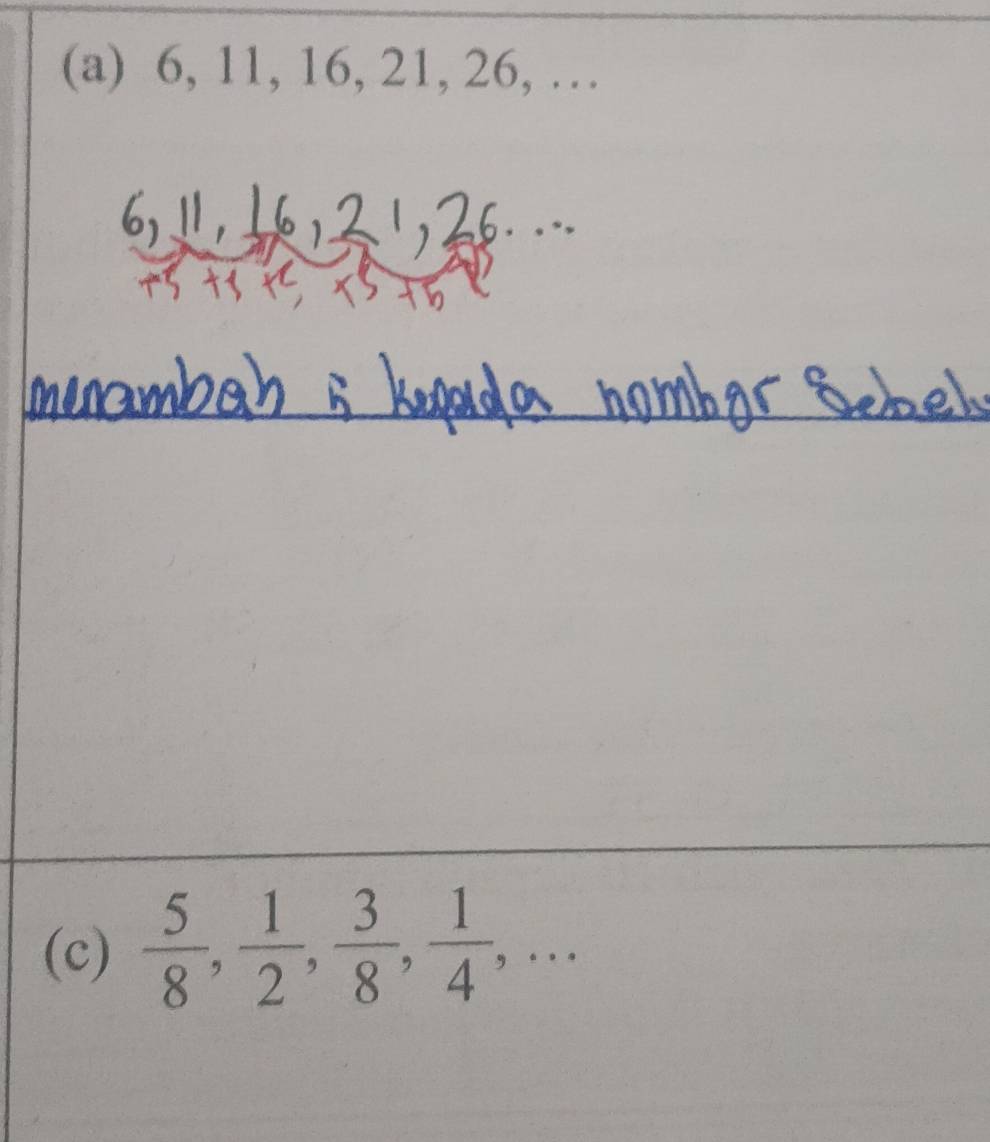 (a) 6, 11, 16, 21, 26, ...
6, 11, 16, 21, 26....
+5 +5 +5 +5 +5
menambah 5 kepada nombor Sebel
(c) 5/8, 1/2, 3/8, 1/4, ...